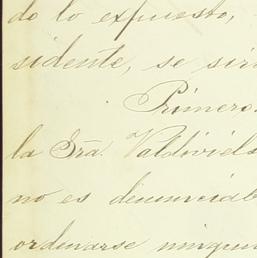 do lo expuesto,
sidente, se sir
Primero.
la Sra. Valdiviels
no es denunciab
ordenarse ningun